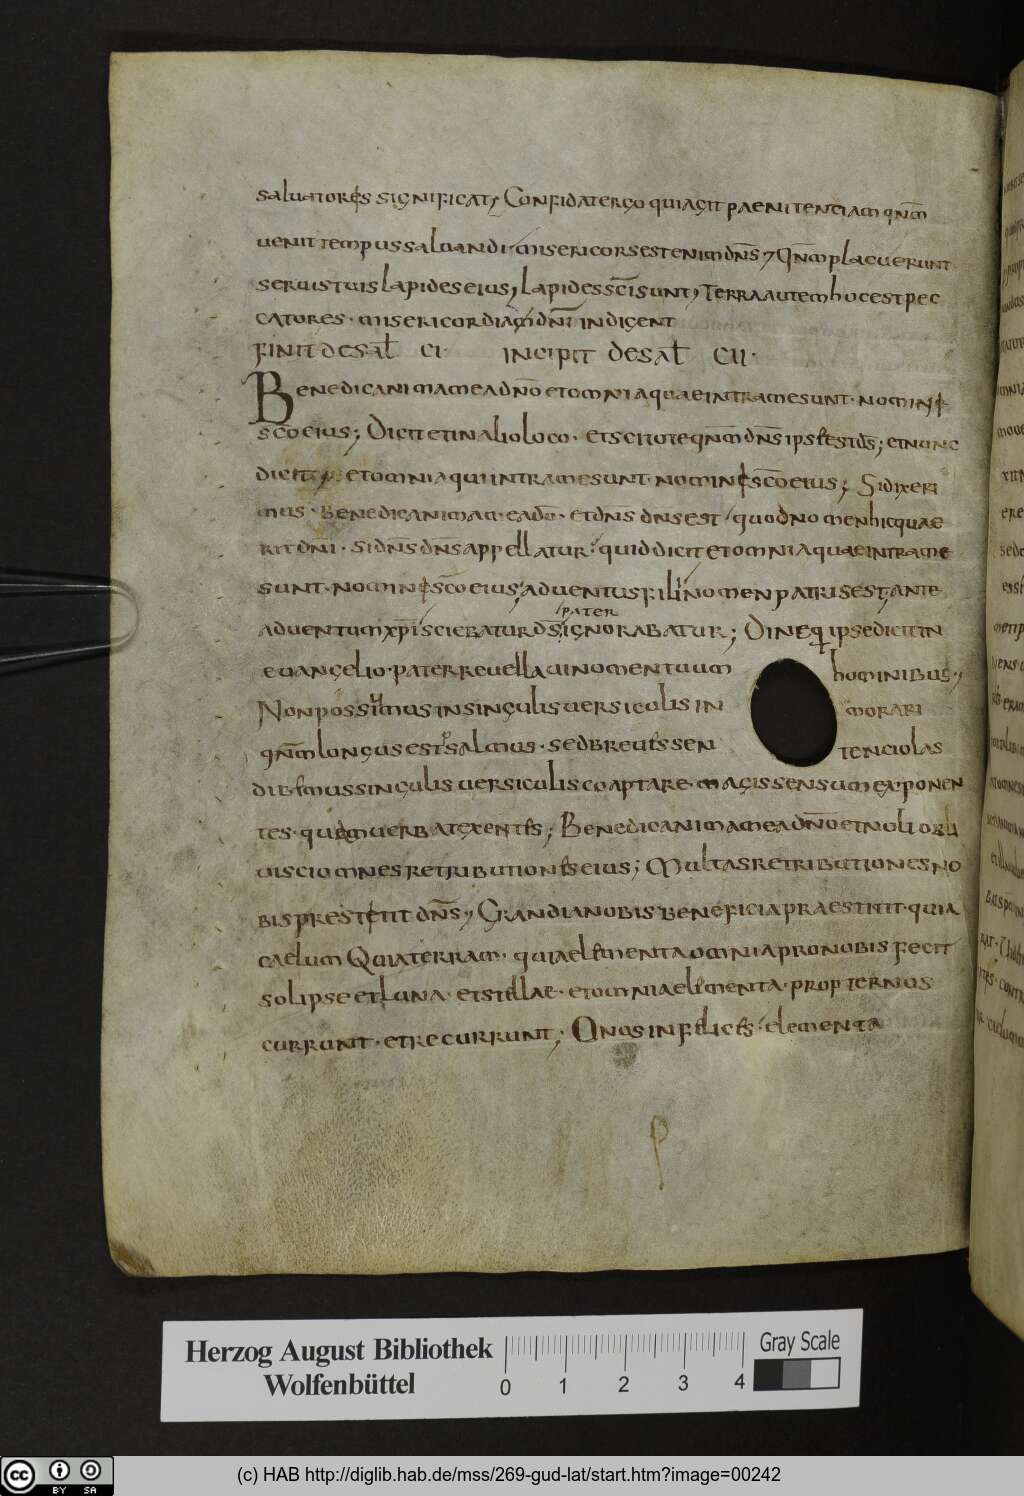 saluatores significat; Confidat ergo qui agit paenitenciam qn̄m
uenit tempus saluandi misericors est enim dn̄s; Qn̄m placuerunt
seruis tuis lapides eius; lapides sc̄i sunt; Terra autem hoc est pec
catores · misericordiam dn̄i indigent
FINIT DE SAL̄ CI· INCIPIT DE SAL̄ CII·
Benedic anima mea dn̄o et omnia quae intra me sunt · nomini
sc̄o eius; Dicit et in alio loco · et scitote qn̄m dn̄s ipse est ds̄; et nunc
dicit et omnia qui intra me sunt · nomine sc̄o eius; Si dixeri
mus · Benedic anima mea dn̄o · et dn̄s dn̄s est quod nomen hic quae
rit dn̄i · si dn̄s dn̄s appellatur · quid dicit et omnia quae intra me
sunt · nomine sc̄o eius; aduentus filii nomen patris est; ante
pater
aduentum xp̄i sciebatur ds̄ ignorabatur; Deniq; ipse dicit in
euangelio · pater reuellaui nomen tuum hominibus·;
Non possumus in singulis uersiculis in morari
qn̄m longus est psalmus · sed breues sen tenciolas
dibemus singulis uersiculis coaptare · magis sensum exponen
tes · quam uerba texentes; Benedic anima mea dn̄o et noli obli
uisci omnes retributiones eius; Multas retributiones no
bis prestetit dn̄s; Grandia nobis beneficia praestitit · quia
caelum Quia terram · quia elementa omnia pro nobis fecit
sol ipse et luna · et stellae · et omnia elimenta · propter nos
currunt · et recurrunt; O nos infelices elementa
p
Herzog August Bibliothek
Wolfenbüttel
0 1 2 3 4
Gray Scale
cc BY SA
(c) HAB http://diglib.hab.de/mss/269-gud-lat/start.htm?image=00242